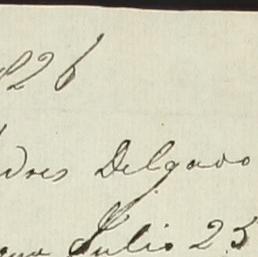 826
dres Delgado
Julio 25